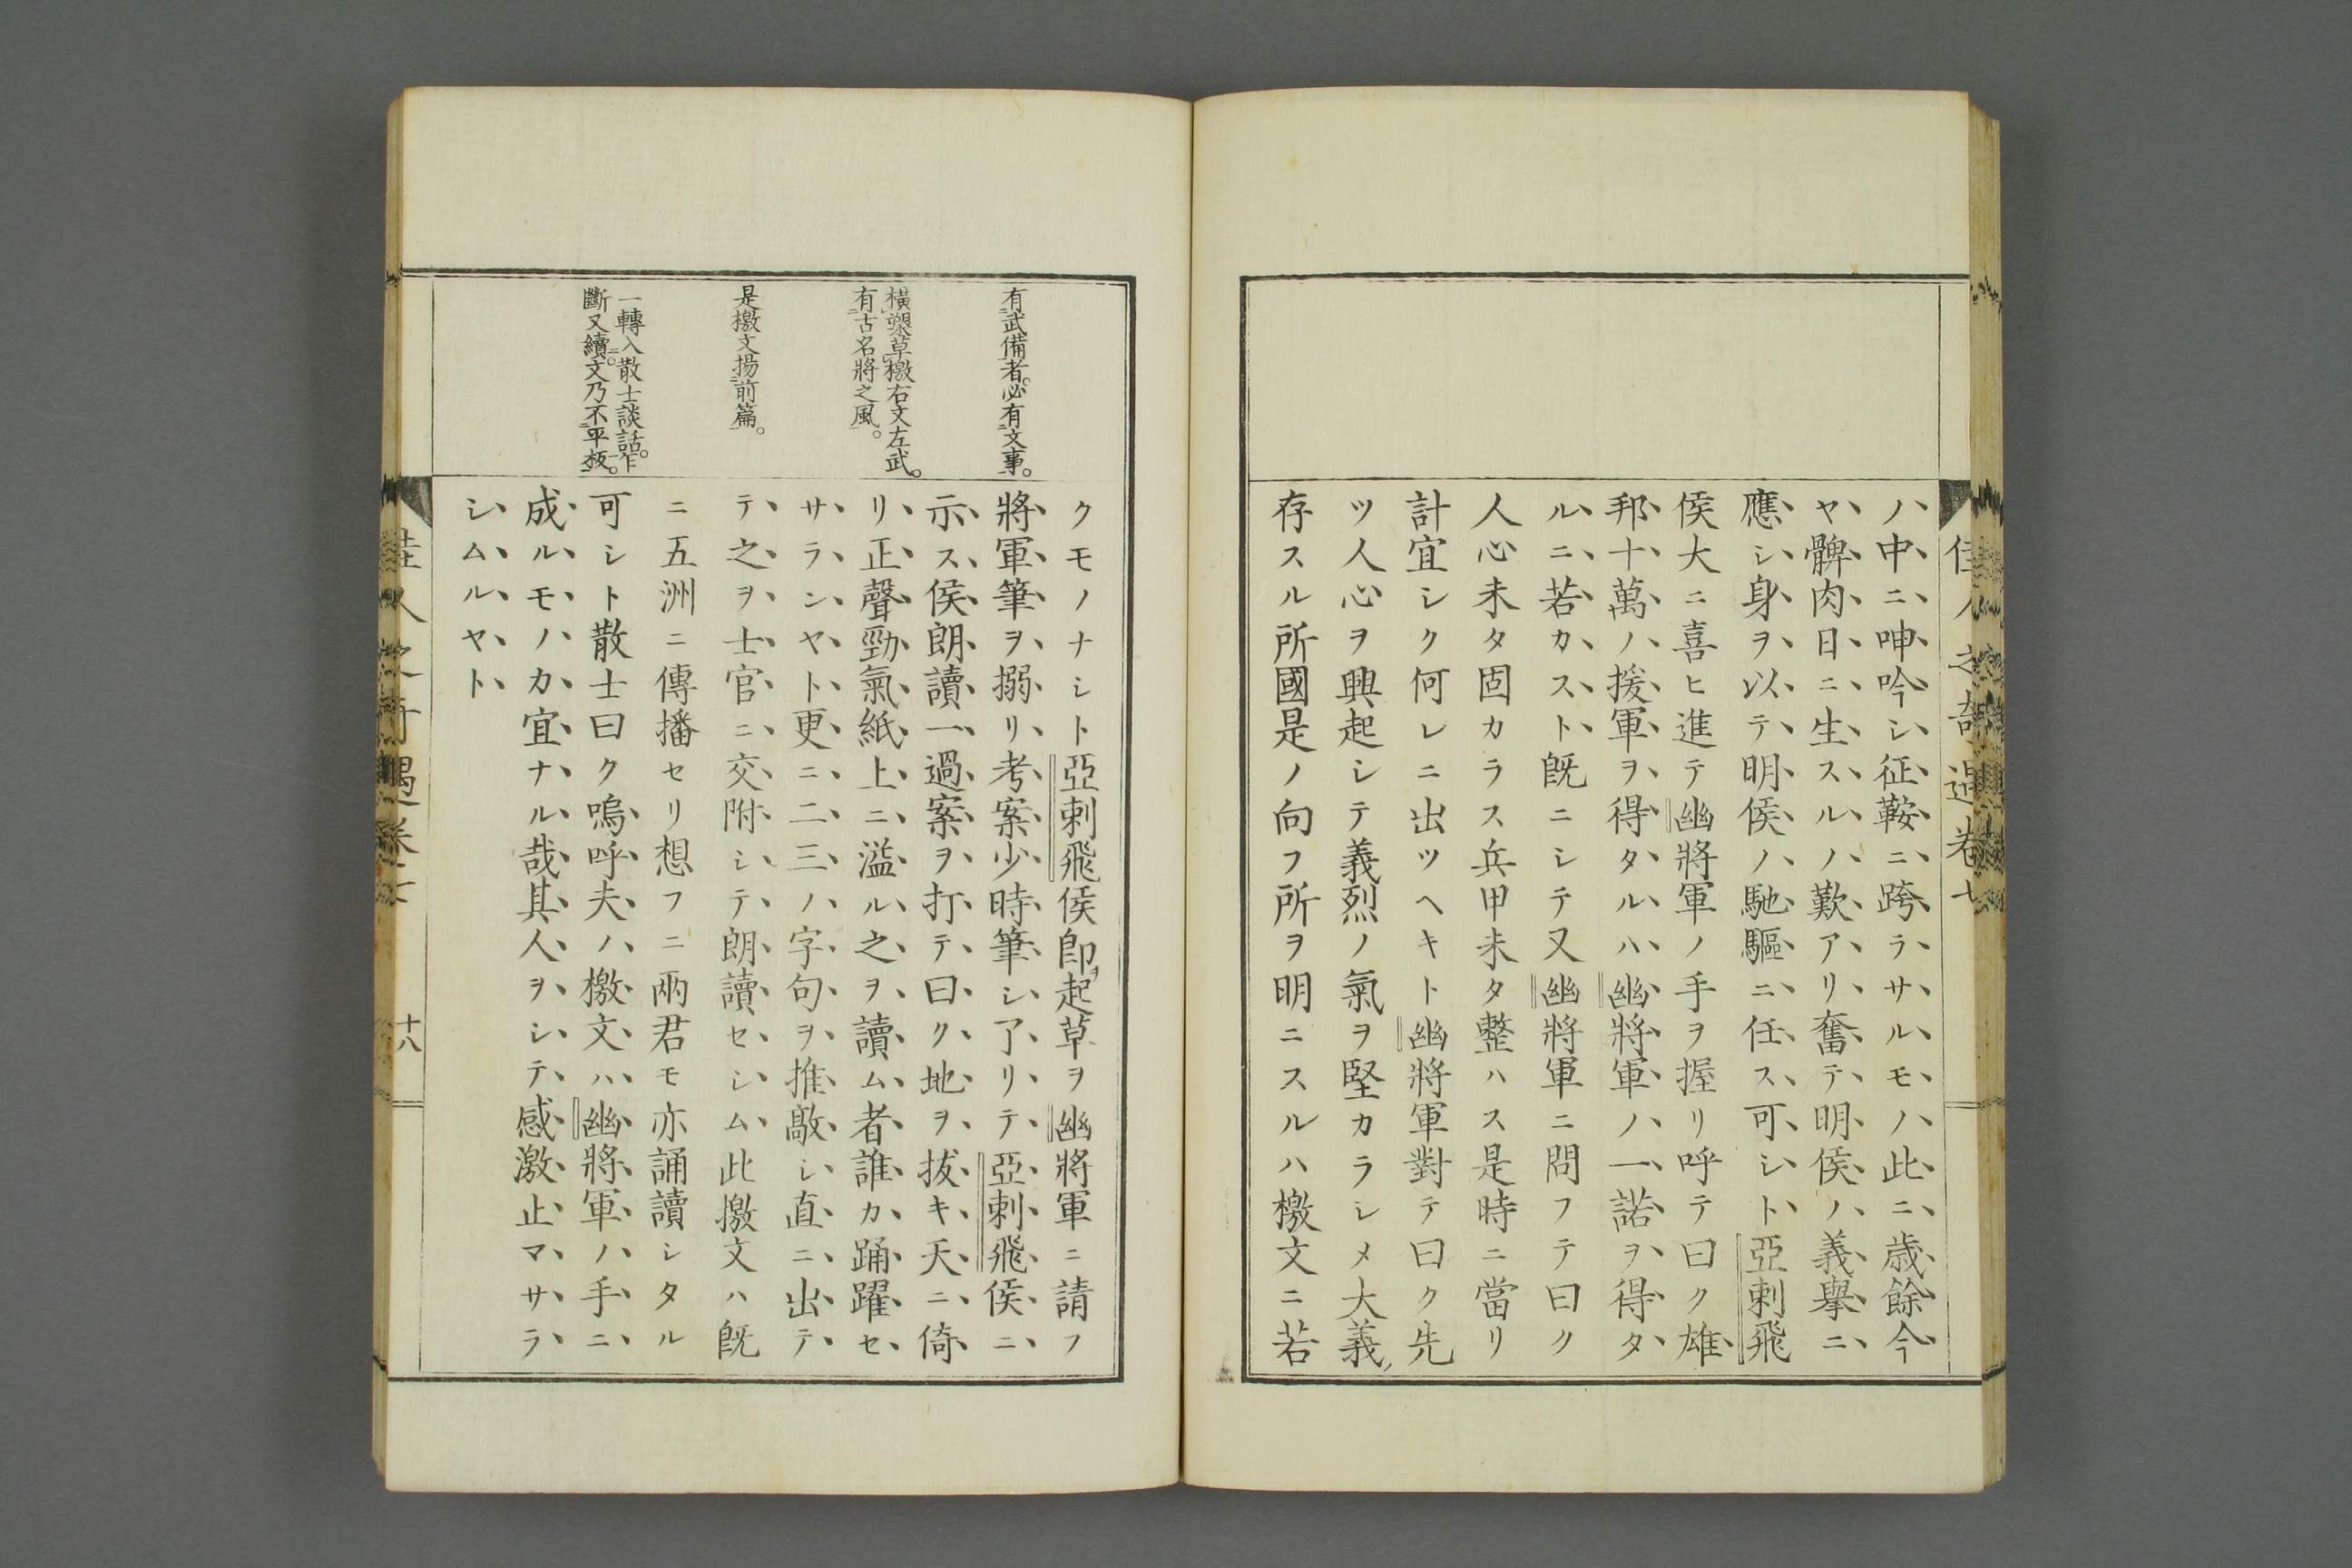 佳人之奇遇卷七
ノ中ニ呻吟シ征鞍ニ跨ラサルモノ此ニ歳餘今
ヤ髀肉日ニ生スルノ歎アリ奮テ明侯ノ義擧ニ
應シ身ヲ以テ明侯ノ馳驅ニ任ス可シト亞剌飛
侯大ニ喜ヒ進テ幽將軍ノ手ヲ握リ呼テ曰ク雄
邦十萬ノ援軍ヲ得タルハ幽將軍ノ一諾ヲ得タ
ルニ若カスト既ニシテ又幽將軍ニ問フテ曰ク
人心未タ固カラス兵甲未タ整ハス是時ニ當リ
計宜シク何レニ出ツヘキト幽將軍對テ曰ク先
ツ人心ヲ興起シテ義烈ノ氣ヲ堅カラシメ大義
存スル所國是ノ向フ所ヲ明ニスルハ檄文ニ若
有武備者。必有文事。
橫槊草檄右文左武。
有古名將之風。
是檄文揚前篇。
一轉入散士談話。乍
斷又續。文乃不平板。
クモノナシト亞剌飛侯卽起草ヲ幽將軍ニ請フ
將軍筆ヲ搦リ考案少時筆シ了リテ亞剌飛侯ニ
示ス侯朗讀一過案ヲ打テ曰ク地ヲ拔キ天ニ倚
リ正聲勁氣紙上ニ溢ル之ヲ讀ム者誰カ踊躍セ
サランヤト更ニ二三ノ字句ヲ推敲シ直ニ出テ
テ之ヲ士官ニ交附シテ朗讀セシム此檄文ハ既
ニ五洲ニ傳播セリ想フニ兩君モ亦誦讀シタル
可シト散士曰ク嗚呼夫ノ檄文ハ幽將軍ノ手ニ
成ルモノカ宜ナル哉其人ヲシテ感激止マサラ
シムルヤト
佳人之奇遇卷七
十八